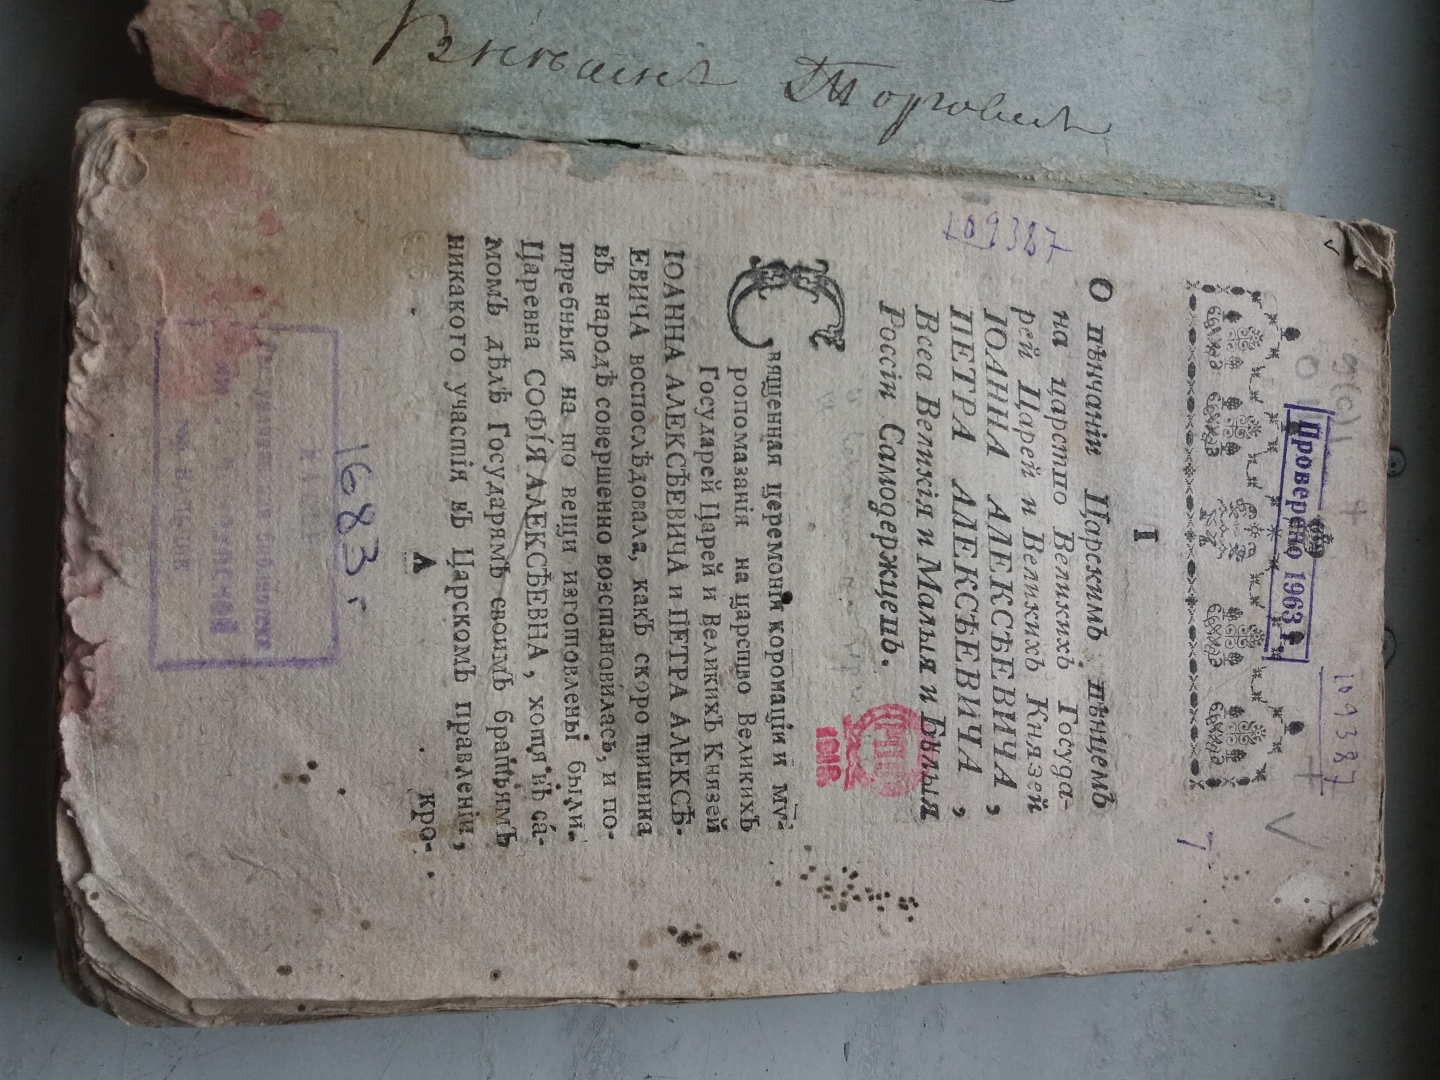 109387
Проверено 1963 г.
7
109387
I
О вѣнчаніи Царскимъ вѣнцемъ
на царство Великихъ Госуда-
рей Царей и Великихъ Князей
ІОАННА АЛЕКСѢЕВИЧА,
ПЕТРА АЛЕКСѢЕВИЧА,
Всеа Великія и Малыя и Бѣлыя
Россіи Самодержцевъ.
1916
Священная церемонія коронаціи и мѵ-
ропомазанія на царство Великихъ
Государей Царей и Великихъ Князей
ІОАННА АЛЕКСѢЕВИЧА и ПЕТРА АЛЕКСѢ-
ЕВИЧА воспослѣдовала, какъ скоро тишина
въ народѣ совершенно возстановилась, и по-
требныя на то вещи изготовлены были.
Царевна СОФІЯ АЛЕКСѢЕВНА, хотя въ са-
момъ дѣлѣ Государямъ своимъ братьямъ
никакого участія въ Царскомъ правленіи,
А
кро-
1683 г